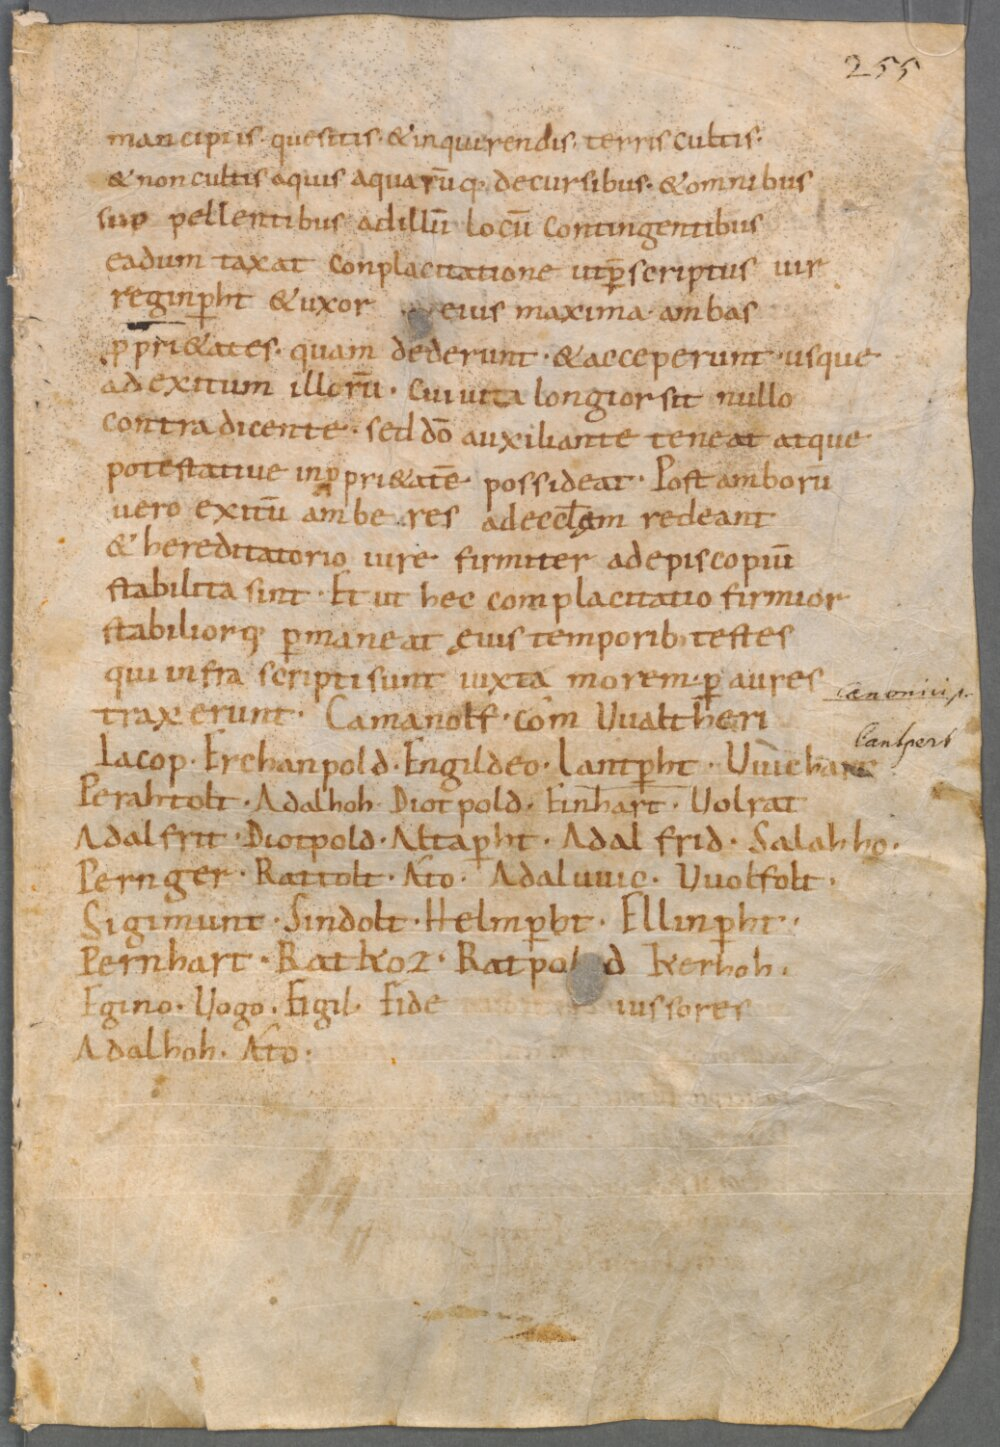 255
mancipiis· quesitis· &inquirendis· terris cultis·
&non cultis aquis aquarūq· decursibus· &omnibus
sup pellentibus adillū locū contingentibus
eadum taxat conplacitatione utp̄scriptus uir
reginp̄ht &uxor eius maxima· ambas
ꝓpri&ates· quam dederunt· &acceperunt· usque
adexitum illorū· cui uita longior sit nullo
contradicente· sed dō auxiliante teneat atque
potestatiue inꝓpri&atē possideat· Post amborū
uero exitū ambe res adecclam redeant
&hereditatorio iure firmiter adepiscopiū
stabilita sint· Et ut hec complacitatio firmior
stabiliorq· p̄maneat ęuis temporib· testes
qui infra scripti sunt iuxta morem· p̄ aures
traxerunt· Camanolf· com Uualtheri
canonici
Lantpert
Iacop· Erchanpold· Engildeo· Lantp̄ht·
Perahtolt· Adalhoh· Diotpold· Einhart· Uolrat
Adalfrit· Diotpold· Altap̄ht· Adalfrid· Salahho·
Pernger· Rattolt· Ato· Adaluuic· Uuolfolt·
Sigimunt· Sindolt· Helmp̄ht· Ellinp̄ht·
Pernhart· Ratkoz· Ratpold Kerhoh·
Egino· Uogo· Eigil· Fide iussores
Adalhoh· Ato·